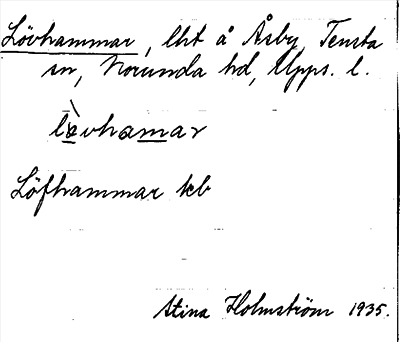 Lövhammar, lht å Åsby, Tensta
sn, Norunda hd, Upps. l.
lò̤vhamar
Löfhammar kb
Stina Holmström 1935.